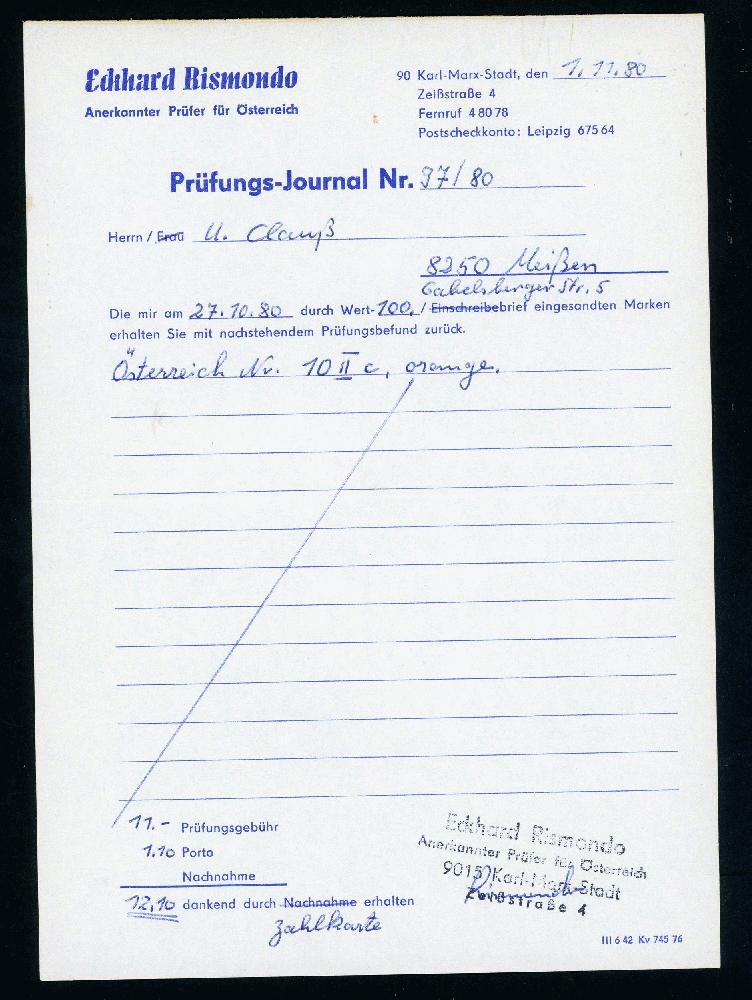 Eckhard Rismondo
Anerkannter Prüfer für Österreich
90 Karl-Marx-Stadt, den 1.11.80
Zeißstraße 4
Fernruf 48078
Postscheckkonto: Leipzig 67564
Prüfungs-Journal Nr. 37/80
Herrn / Frau U. Clauß
8250 Meißen
Gabelsberger Str. 5
Die mir am 27.10.80 durch Wert-100,/Einschreibebrief eingesandten Marken
erhalten Sie mit nachstehendem Prüfungsbefund zurück.
Österreich Nr. 10 II c, orange.
11.- Prüfungsgebühr
1.10 Porto
Nachnahme
12,10 dankend durch Nachnahme erhalten
Zahlkarte
Eckhard Rismondo
Anerkannter Prüfer für Österreich
9015 Karl-Marx-Stadt
Zeißstraße 4
Rismondo
III 6 42 Kv 745 76